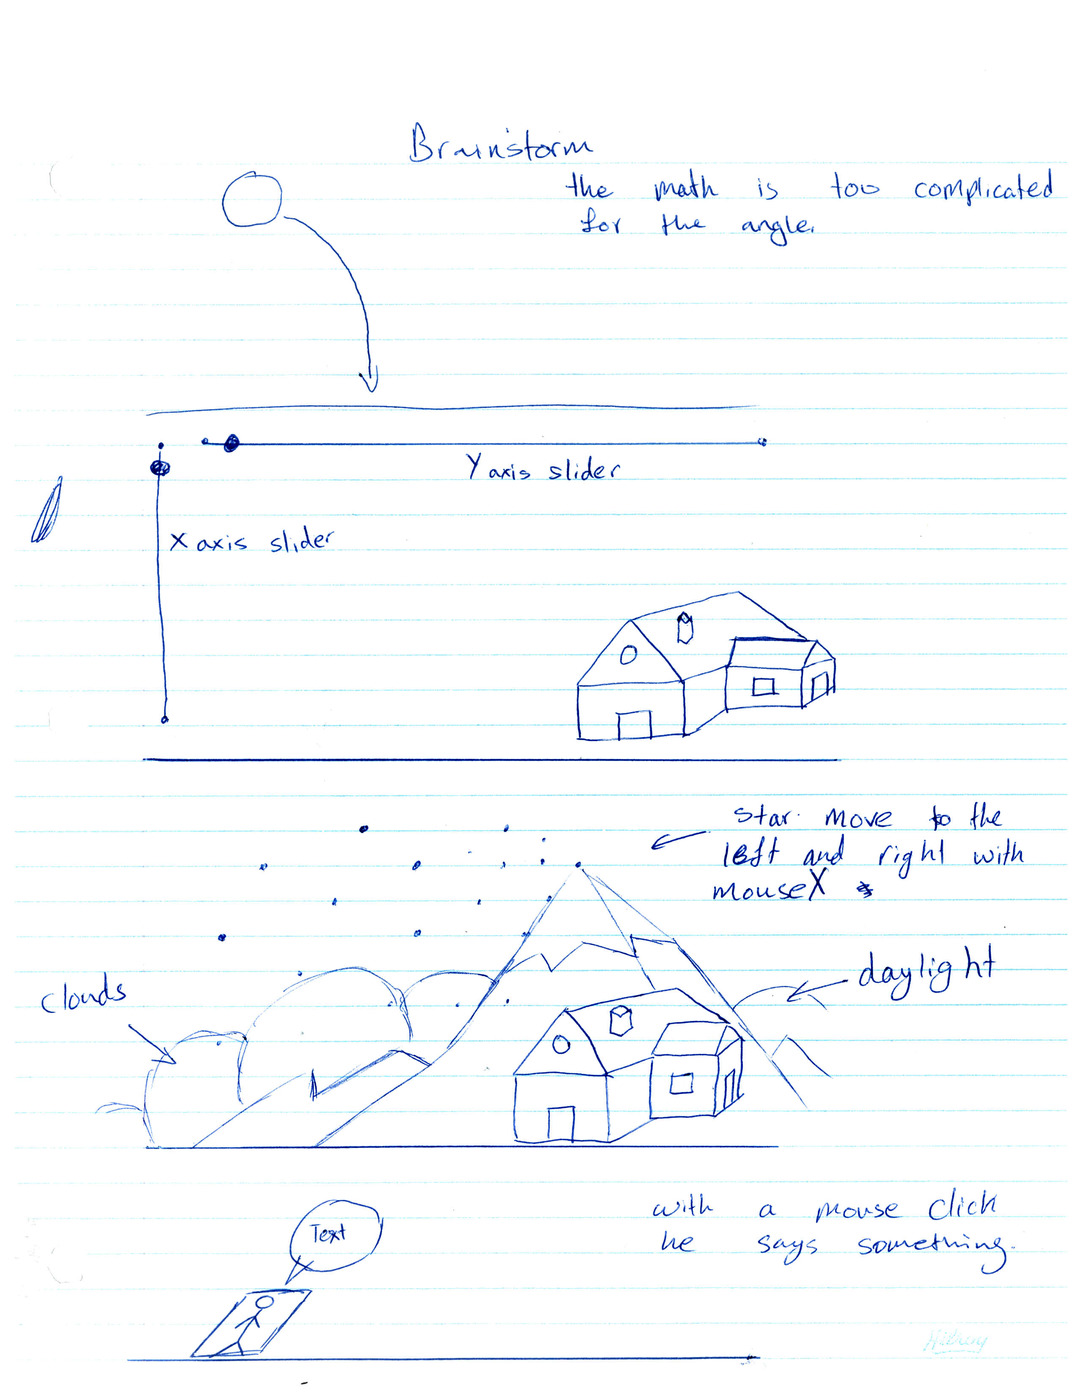 Brainstorm
the math is too complicated
for the angle.
Y axis slider
X axis slider
star move to the
left and right with
mouseX
daylight
clouds
with a mouse click
he says something.
Text